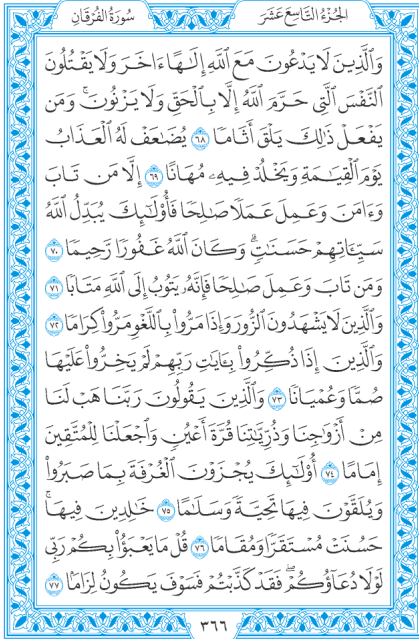 الجزء التاسع عشر
سورة الفرقان
وَٱلَّذِينَ لَا يَدْعُونَ مَعَ ٱللَّهِ إِلَٰهًا ءَاخَرَ وَلَا يَقْتُلُونَ
ٱلنَّفْسَ ٱلَّتِي حَرَّمَ ٱللَّهُ إِلَّا بِٱلْحَقِّ وَلَا يَزْنُونَۚ وَمَن
يَفْعَلْ ذَٰلِكَ يَلْقَ أَثَامًا ٦٨ يُضَٰعَفْ لَهُ ٱلْعَذَابُ
يَوْمَ ٱلْقِيَٰمَةِ وَيَخْلُدْ فِيهِۦ مُهَانًا ٦٩ إِلَّا مَن تَابَ
وَءَامَنَ وَعَمِلَ عَمَلًا صَٰلِحًا فَأُوْلَٰٓئِكَ يُبَدِّلُ ٱللَّهُ
سَيِّـَٔاتِهِمْ حَسَنَٰتٍۗ وَكَانَ ٱللَّهُ غَفُورًا رَّحِيمًا ٧٠
وَمَن تَابَ وَعَمِلَ صَٰلِحًا فَإِنَّهُۥ يَتُوبُ إِلَى ٱللَّهِ مَتَابًا ٧١
وَٱلَّذِينَ لَا يَشْهَدُونَ ٱلزُّورَ وَإِذَا مَرُّواْ بِٱللَّغْوِ مَرُّواْ كِرَامًا ٧٢
وَٱلَّذِينَ إِذَا ذُكِّرُواْ بِـَٔايَٰتِ رَبِّهِمْ لَمْ يَخِرُّواْ عَلَيْهَا
صُمًّا وَعُمْيَانًا ٧٣ وَٱلَّذِينَ يَقُولُونَ رَبَّنَا هَبْ لَنَا
مِنْ أَزْوَٰجِنَا وَذُرِّيَّٰتِنَا قُرَّةَ أَعْيُنٍ وَٱجْعَلْنَا لِلْمُتَّقِينَ
إِمَامًا ٧٤ أُوْلَٰٓئِكَ يُجْزَوْنَ ٱلْغُرْفَةَ بِمَا صَبَرُواْ
وَيُلَقَّوْنَ فِيهَا تَحِيَّةً وَسَلَٰمًا ٧٥ خَٰلِدِينَ فِيهَاۚ
حَسُنَتْ مُسْتَقَرًّا وَمُقَامًا ٧٦ قُلْ مَا يَعْبَؤُاْ بِكُمْ رَبِّي
لَوْلَا دُعَآؤُكُمْۖ فَقَدْ كَذَّبْتُمْ فَسَوْفَ يَكُونُ لِزَامًا ٧٧
٣٦٦